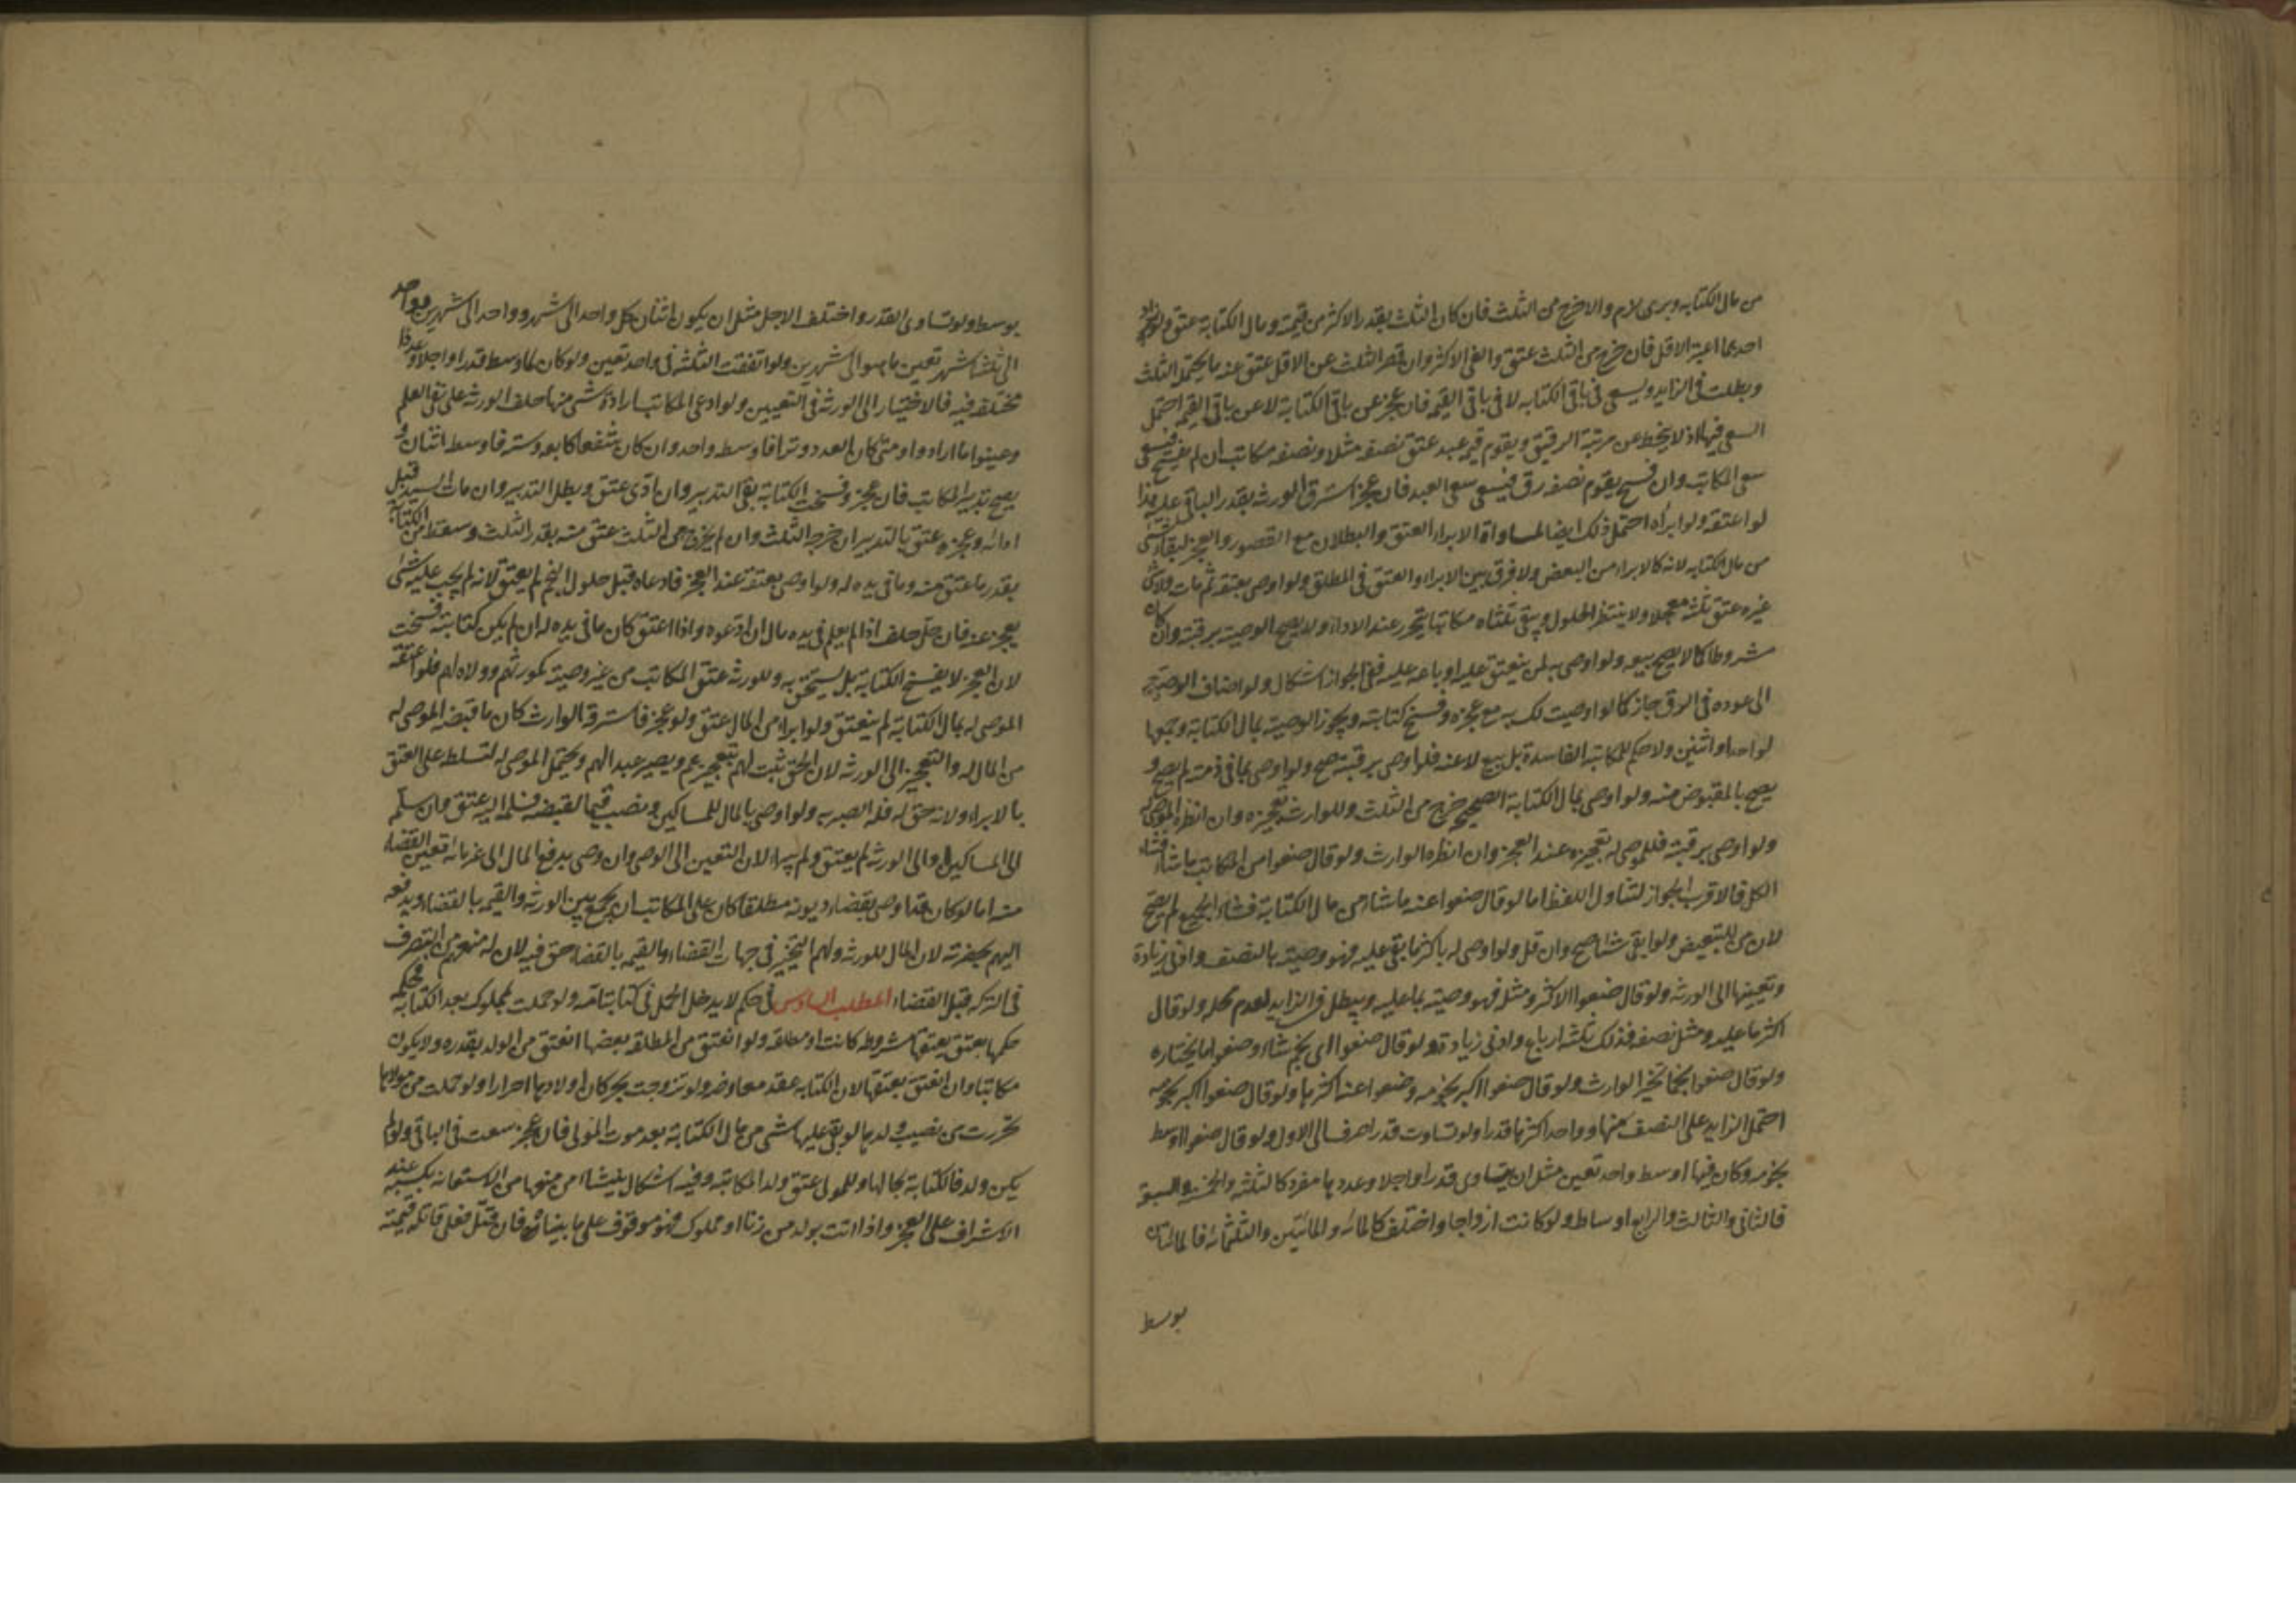 من مال الكتابة وبرئ لزم والا خرج من الثلث فان كان الثلث بقدر الاكثر من قيمته ومال الكتابة عتق ولو زاد
احدهما اعتبر الاقل فان خرج من الثلث عتق والغى الاكثر وان قصر الثلث عن الاقل عتق عنه ما يحتمله الثلث
وبطلت فى الزايد ويسعى فى باقى الكتابه لا فى باقى القيمه فان عجز عن باقى الكتابة لا عن باقى القيمه احتمل
السعى فيها اذ لا ينحط عن مرتبة الرقيق ويقوم قيمه عبد عتق نصفه مثلا ونصفه مكاتب ان لم يفسخ فيسعى
سعى المكاتب وان فسخ يقوم نصفه رق فيسعى سعى العبد فان عجز استرق الورثه بقدر الباقى عليه هذا
لو اعتقه ولو ابرأه احتمل ذلك ايضا لمساواة الابراء العتق والبطلان مع القصور والعجز لبقاء شئ
من مال الكتابه لانه كالابراء من البعض ولا فرق بين الابراء والعتق فى المطلق ولو اوصى بعتقه ثم مات ولا شئ
غيره عتق ثلثه معجلا ولا ينتظر الحلول ويبقى ثلثاه مكاتبا يتحرر عند الاداء ولا يصح الوصيه برقبته وان كان
مشروطا كما لا يصح بيعه ولو اوصى به لمن ينعتق عليه او باعه عليه ففى الجواز اشكال ولو اضاف الوصية
الى عوده فى الرق جاز كما لو اوصيت لك به مع عجزه وفسخ كتابته ويجوز الوصيه بمال الكتابه وجمعها
لواحد او اثنين ولا حكم للمكاتبه الفاسدة بل يبيع لا عنه فلو اوصى برقبته صح ولو اوصى بما فى ذمته لم يصح و
يصح بالمقبوض منه ولو اوصى بمال الكتابة الصحيح خرج من الثلث وللوارث تعجيزه وان انظره الموصى له
ولو اوصى برقبته فللموصى له تعجيزه عند العجز وان انظره الوارث ولو قال ضعوا من المكاتب ما شاء فشاء
الكل فالاقرب الجواز لتناول اللفظ اما لو قال ضعوا عنه ما شاء من مال الكتابة فشاء الجميع لم يصح
لان من للتبعيض ولو ابقى شئا صح وان قل ولو اوصى له باكثر ما بقى عليه فهو وصيته بالنصف وادنى زيادة
وتعيينها الى الورثه ولو قال ضعوا الاكثر ومثله فهو وصيته بما عليه ويبطل فى الزايد لعدم محله ولو قال
اكثر ما عليه ومثل نصفه فذلك ثلثه ارباع وادنى زيادة ولو قال ضعوا اى نجم شاء وضعوا ما يختاره
ولو قال ضعوا نجما تخير الوارث ولو قال ضعوا اكبر نجومه وضعوا عنه اكثرها ولو قال ضعوا اكبر نجومه
احتمل الزايد على النصف منها وواحد اكثرها قدرا ولو تساوت قدرا صرف الى الاول ولو قال ضعوا اوسط
نجومه وكان فيها اوسط واحد تعين مثل ان يتساوى قدرا واجلا وعددها مفرد كالثلثه والخمسه والسبعة
فالثانى والثالث والرابع اوساط ولو كانت ازواجا واختلف كالمائه والمائتين والثلثمائه فالمائتان
بوسط
بوسط ولو تساوى القدر واختلف الاجل مثل ان يكون اثنان كل واحد الى شهر وواحد الى شهرين وواحد
الى ثلثه اشهر تعين ما هو الى شهرين ولو اتفقت الثلثه فى واحد تعين ولو كان لها وسط قدرا واجلا وعددا
مختلف فيه فالاختيار الى الورثه فى التعيين ولو ادعى المكاتب ارادة شئ منها حلف الورثه على نفى العلم
وعينوا ما ارادوا ومتى كان العدد وترا فاوسطه واحد وان كان شفعا كاربعه وسته فاوسطه اثنان و
يصح تدبير المكاتب فان عجز وفسخت الكتابة بقى التدبير وان ادى عتق وبطل التدبير وان مات السيد قبل
ادائه وعجزه عتق بالتدبير ان خرج الثلث وان لم يخرج من الثلث عتق منه بقدر الثلث وسقط من الكتابة
بقدر ما عتق منه وما فى يده له ولو اوصى بعتقه عند العجز فادعاه قبل حلول النجم لم يعتق لانه لم يجب عليه شئ
يعجز عنه فان حل حلف اذا لم يعلم فى يده مال ان ادعوه واذا اعتق كان ما فى يده له ان لم يكن كتابته فسخت
لان العجز لا يفسخ الكتابة بل يستحق به وللورثه عتق المكاتب من غير وصيته كمورثهم وولاه لهم فلو اعتقه
الموصى له بمال الكتابة لم ينعتق ولو ابراه من المال عتق ولو عجز فاسترقه الوارث كان ما قبضه الموصى له
من المال له والتعجيز الى الورثه لان الحق ثبت لهم بتعجيزهم ويصير عبدا لهم ويحتمل الموصى له لتسلطه على العتق
بالابراء ولانه حق له فله الصبر به ولو اوصى بالمال للمساكين ونصب قيما لقبضه فسلمه اليه عتق وان سلم
الى المساكين او الى الورثه لم يعتق ولم يبرا لان التعين الى الوصى وان وصى بدفع المال الى غرمائه تعين القضاء
منه اما لو كان قد اوصى بقضاء ديونه مطلقا كان على المكاتب ان يجمع بين الورثه والقيم بالقضاء ويدفعه
اليهم بحضرته لان المال للورثه ولهم التخير فى جهات القضاء وللقيم بالقضا حق فيه لان له منعهم من التصرف
فى التركه قبل القضاء المطلب السادس فى حكم لا يدخل الحمل فى كتابة امه ولو حملت بمملوك بعد الكتابه فحكمه
حكمها يعتق بعتقها مشروطه كانت او مطلقه ولو انعتق من المطلقه بعضها انعتق من الولد بقدره ولا يكون
مكاتبا وان انعتق بعتقها لان الكتابه عقد معاوضه ولو تزوجت بحر كان اولادها احرارا ولو حملت من مولاها
تحررت من نصيب ولدها لو بقى عليها شئ من مال الكتابة بعد موت المولى فان عجز سعت فى الباقى ولو لم
يكن ولد فالكتابة بحالها وللمولى عتق ولد المكاتبه وفيه اشكال ينشاء من منعها من الاستعانه بكسبه عند
الاشراف على العجز واذا اتت بولد من زنا او مملوك فهو موقوف على ما بيناه فان قتل فعلى قاتله قيمته